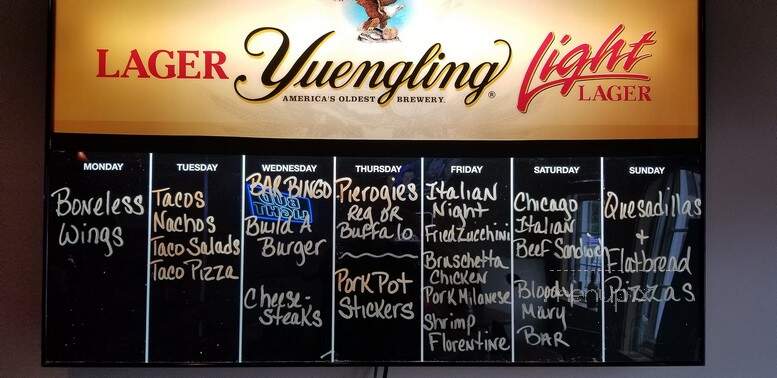 LAGER Yuengling Light
AMERICA'S OLDEST BREWERY. ® LAGER
MONDAY
Boneless
Wings
TUESDAY
Tacos
Nachos
Taco Salads
Taco Pizza
WEDNESDAY
BAR BINGO
BUD
LIGHT
Build A
Burger
Cheese-
Steaks
THURSDAY
Pierogies
Reg OR
Buffalo
Pork Pot
Stickers
FRIDAY
Italian
Night
Fried Zucchini
Bruschetta
Chicken
Pork Milanese
Shrimp
Florentine
SATURDAY
Chicago
Italian
Beef Sandwich
Bloody
Mary
BAR
SUNDAY
Quesadillas
+
Flatbread
Pizzas